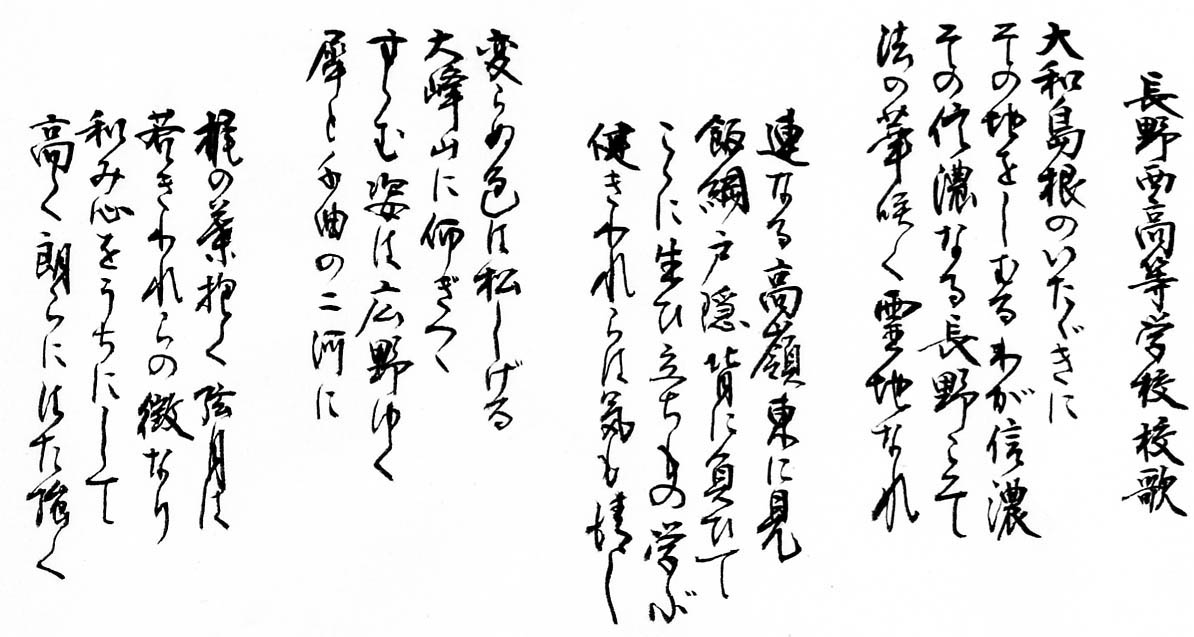 長野西高等学校校歌
大和島根のいたゞきに
その地をしむるわが信濃
その信濃なる長野こそ
法の華咲く霊地なれ
連なる高嶺東に見
飯綱戸隠背に負ひて
こゝに生ひ立ちもの学ぶ
健きわれらは気も清し
変らぬ色は松しげる
大峰山に仰ぎつゝ
すゝむ姿は広野ゆく
犀と千曲の二河に
梶の葉抱く弦月は
若きわれらの徽なり
和み心をうちにして
高く朗らにはた強く